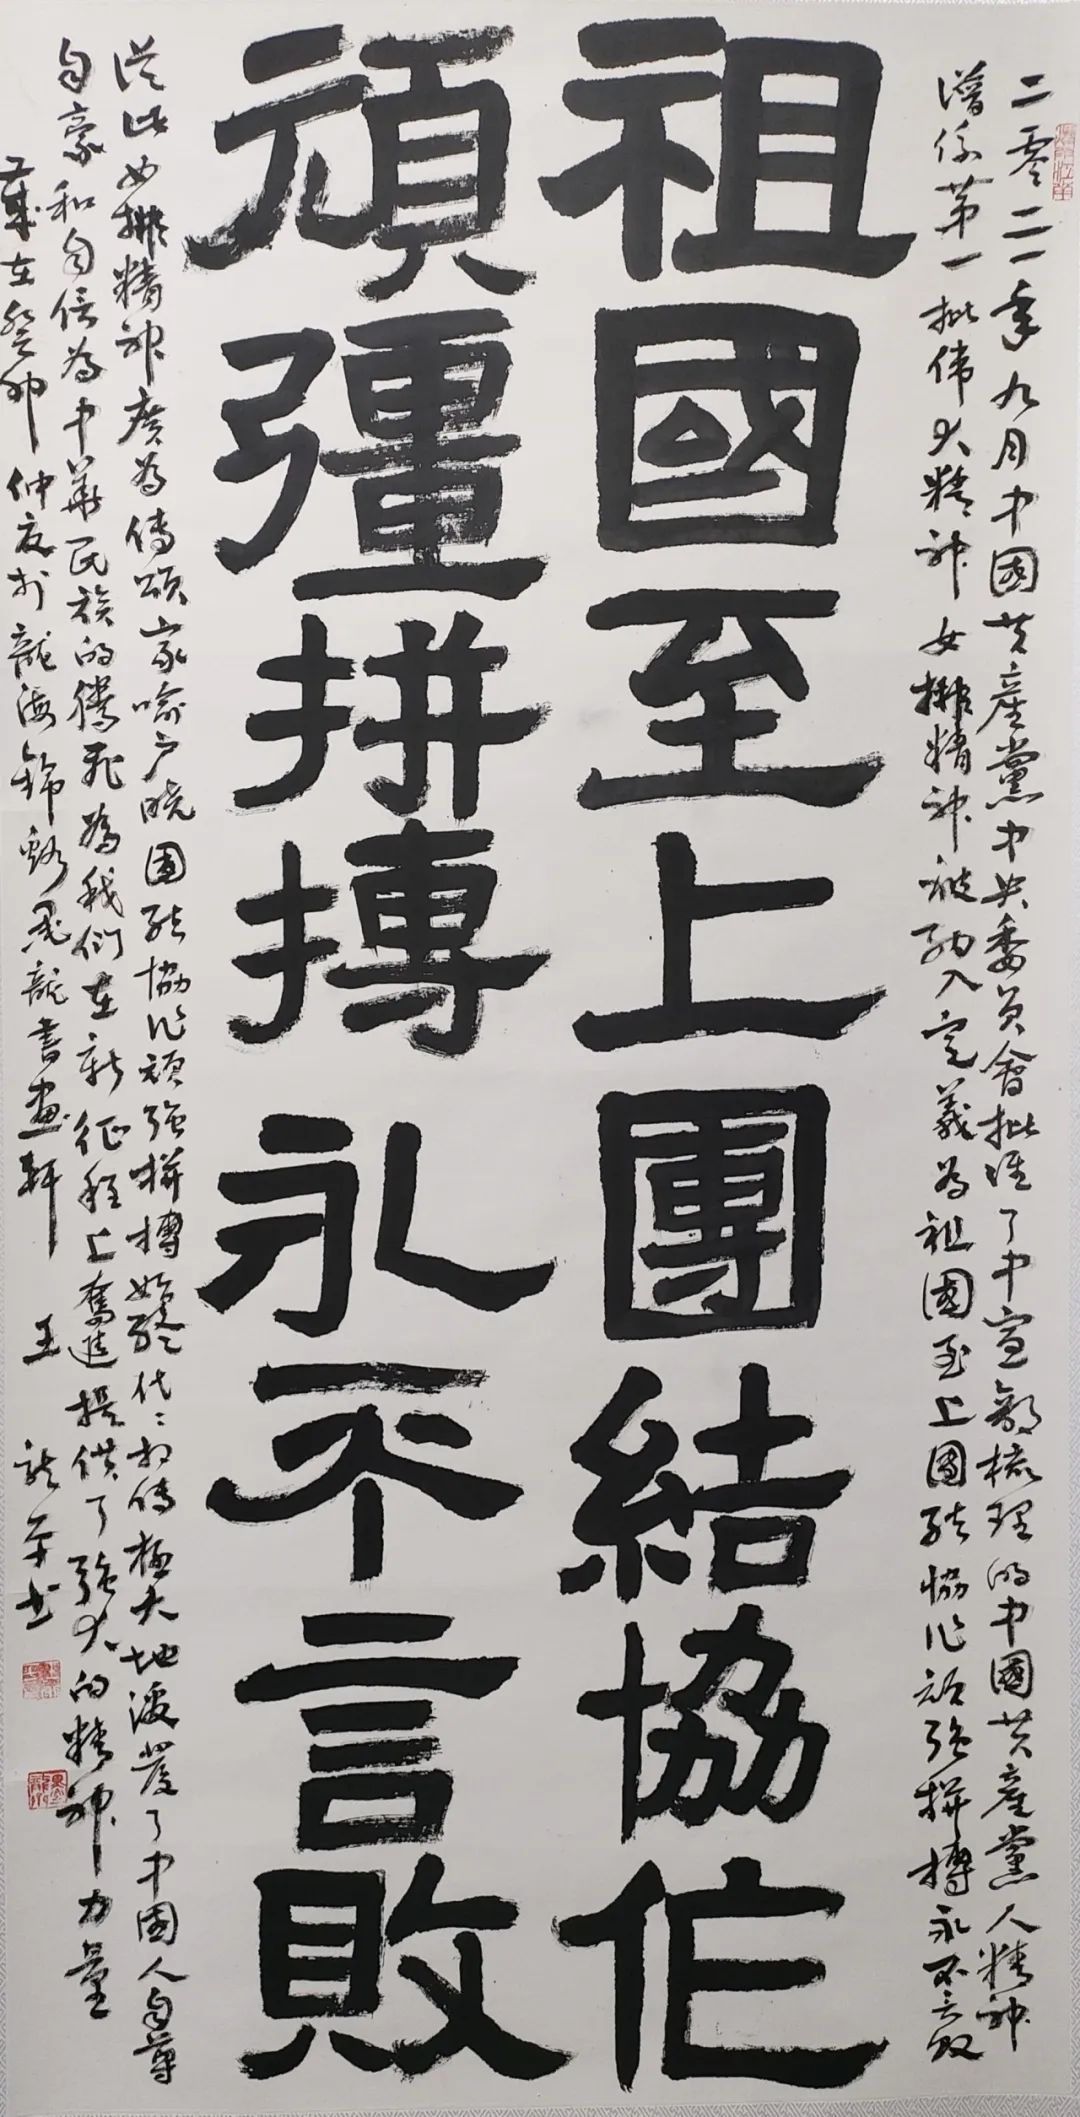 二零二一年九月中國共產黨中央委員會批准了中宣部梳理的中國共產黨人精神
譜系第一批偉大精神女排精神被納入定義為祖國至上團結協作頑強拼搏永不言敗
祖國至上團結協作
頑彊拼搏永不言敗
從此女排精神廣為傳頌家喻戶曉團結協作頑強拼搏始終代代相傳極大地激發了中國人自尊
自豪和自信為中華民族的騰飛為我們在新征程上奮進提供了強大的精神力量
歲在癸卯仲夏於龍海錦墨龍書畫軒 王龍平书